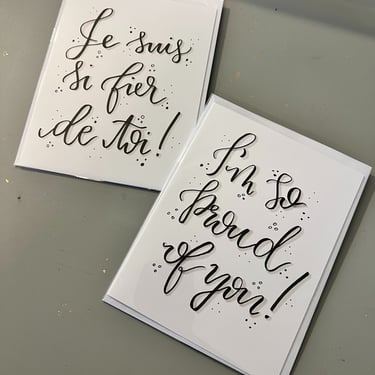 Je suis
si fier
de toi!
I'm so
proud
of you!